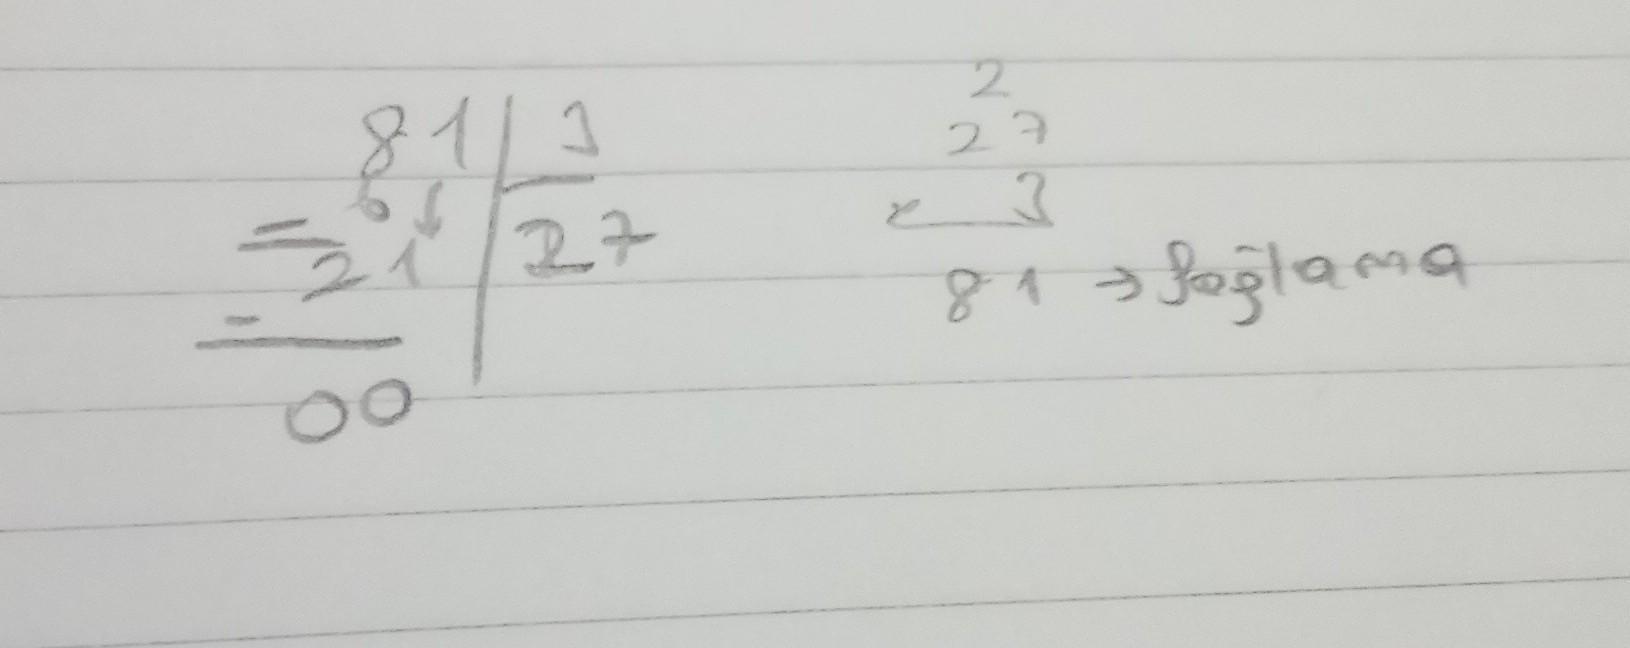 81 | 3
- 6 ↓ | 27
21
-
00
2
27
x 3
81 → Sağlama